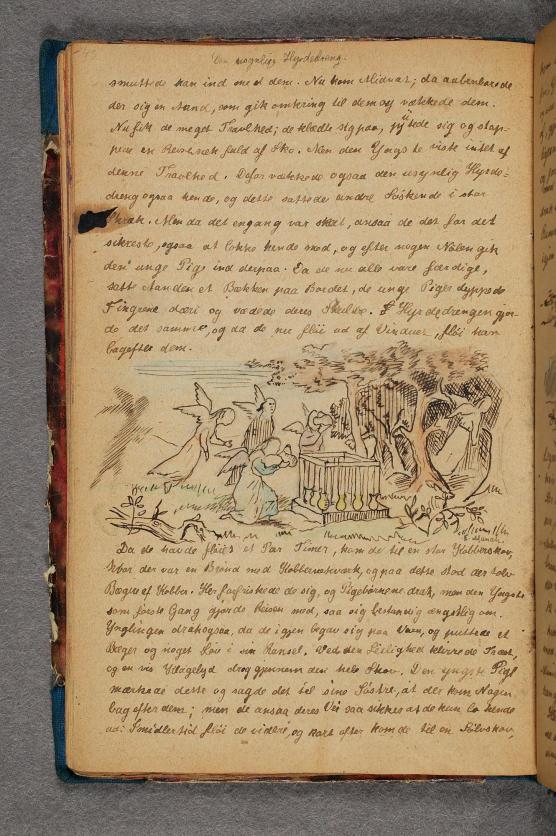 Den usynlige Hyrdedreng.
smuttede han ind med dem. Nu kom Midnat; da aabenbarede
der sig en Aand, som gik omkring til dem og vækkede dem.
Nu fik de meget Travlhed; de klædte sig paa, pyntede sig og stop-
pede en Reisesæk fuld af Sko. Men den Yngste viste intet af
denne Travlhed. Derfor vækkede ogsaa den usynlig Hyrde-
dreng ogsaa hende, og dette sattede andre Søskende i stor
Skræk. Men da det engang var skeet, ansaa de det for det
sikreste, ogsaa at lokke hende med, og efter nogen Nølen gik
den unge Pige ind derpaa. Da de nu alle vare færdige,
satte Aanden et Bækken paa Bordet, de unge Piger dyppede
Fingrene deri og vædede deres Skuldre. Hyrdedrengen gjor-
de det samme, og da de nu fløi ud af Vinduet, fløi han
bagefter dem.
E. Munch
Da de havde fløiet et Par Timer, kom de til en stor Kobberskov,
hvor der var en Brønd med Kobberrækværk, og paa dette stod der tolv
Bægre af Kobber. Her forfriskede de sig, og Pigebørnene drak, men den Yngste
som første Gang gjorde Reisen med, saa sig bestandig ængstlig om.
Ynglingen drak ogsaa, da de igjen begav sig paa Veien, og puttede et
Bæger og noget Løv i sin Ransel. Ved den Leilighed klirrede Træet,
og en vis Lyd drog gjennem den hele Skov. Den yngste Pige
mærkede dette og sagde det til sine Søstre, at der kom Nogen
bag efter dem; men de ansaa deres Vei saa sikker at de kun lo hende
ud. Imidlertid fløi de videre, og kort efter kom de til en Sølvskov,